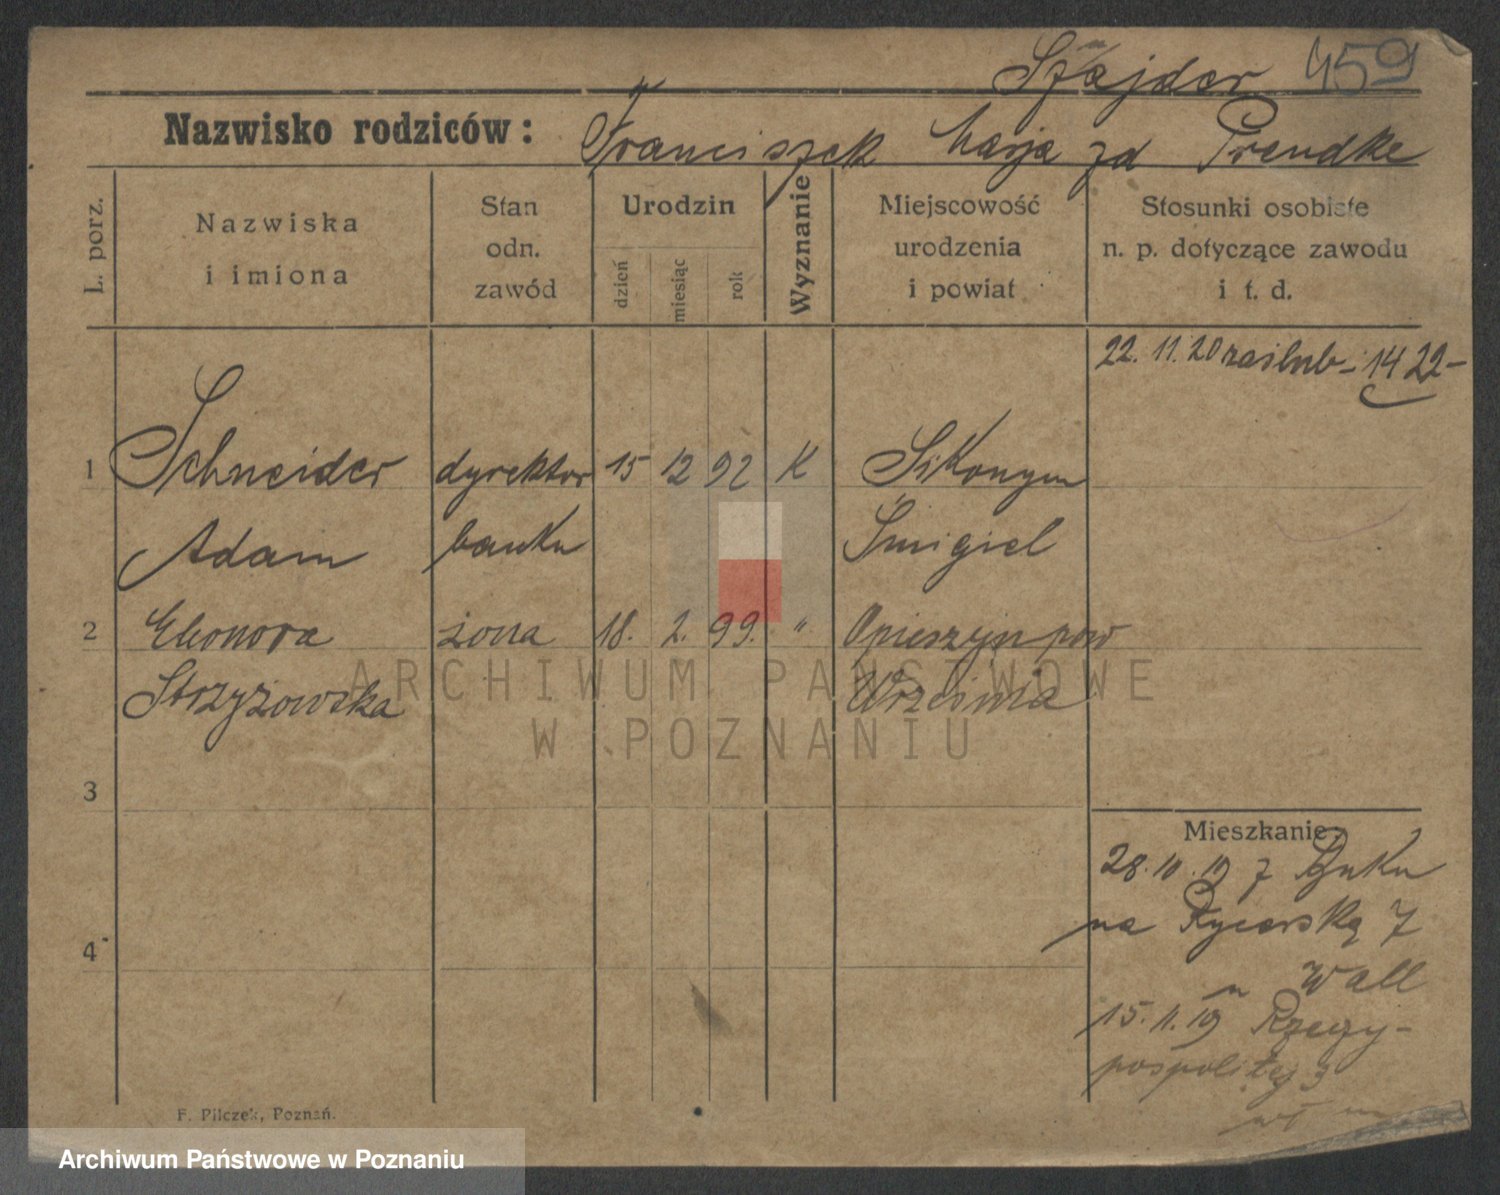 Szajder 459
Nazwisko rodziców: Franciszek Marja zd Prendke
L. porz.
Nazwiska
i imiona
Stan
odn.
zawód
Urodzin
dzień
miesiąc
rok
Wyznanie
Miejscowość
urodzenia
i powiat
Stosunki osobiste
n. p. dotyczące zawodu
i t. d.
22. 11. 20 zaślub - 1422 -
1 Schneider dyrektor 15 12 92 K
Adam banku Śmigiel
2 Eleonora żona 18. 2. 99. " Opieszyn pow
Strzyżowska Września
3
4
Mieszkanie:
28. 10. 19 z Buku
na Rycerską 7
u Wall
15. 11. 19 Rzeczy-
pospolitej 3
F. Pilczek, Poznań.
ARCHIWUM PAŃSTWOWE
W POZNANIU
Archiwum Państwowe w Poznaniu